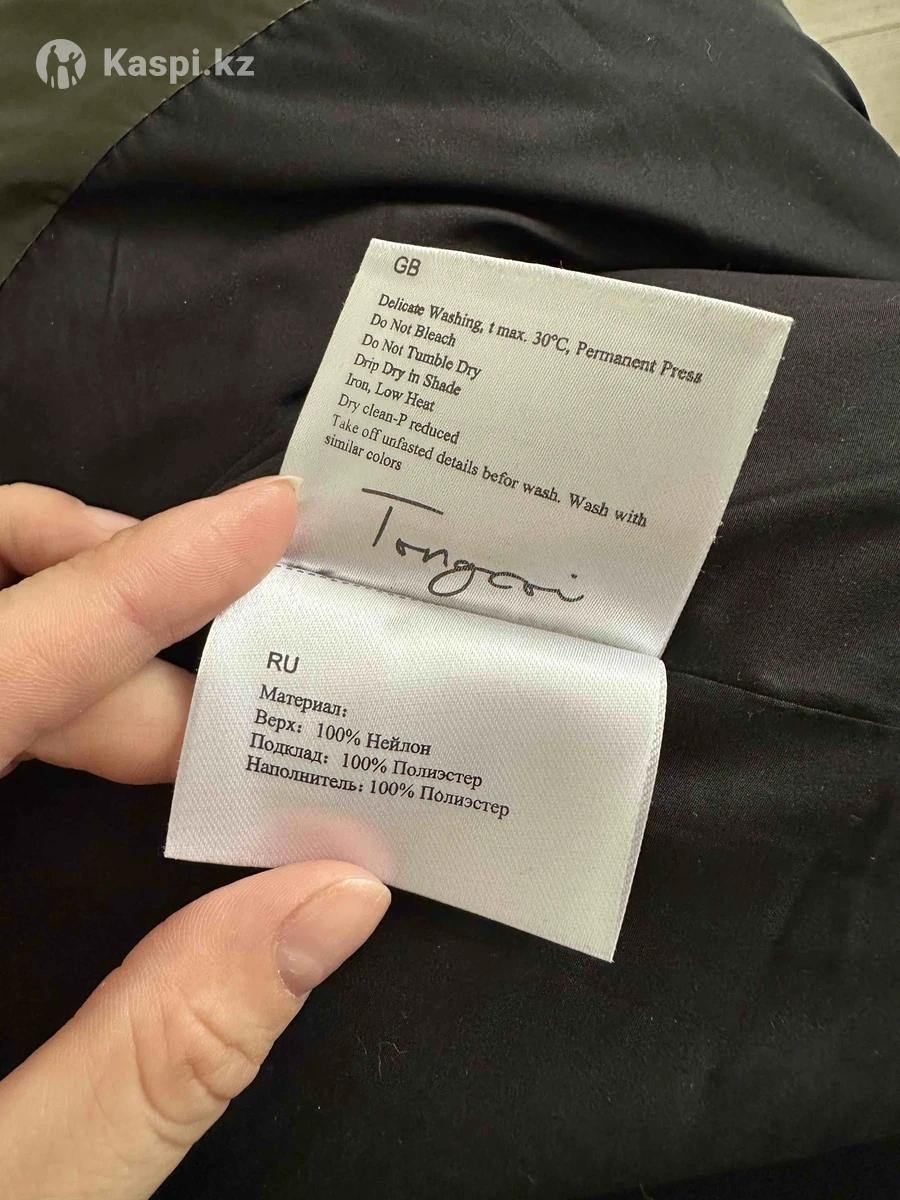 Kaspi.kz
GB
Delicate Washing, t max. 30°C, Permanent Press
Do Not Bleach
Do Not Tumble Dry
Drip Dry in Shade
Iron, Low Heat
Dry clean-P reduced
Take off unfasted details befor wash. Wash with
similar colors
Tongcoi
RU
Материал:
Верх: 100% Нейлон
Подклад: 100% Полиэстер
Наполнитель: 100% Полиэстер